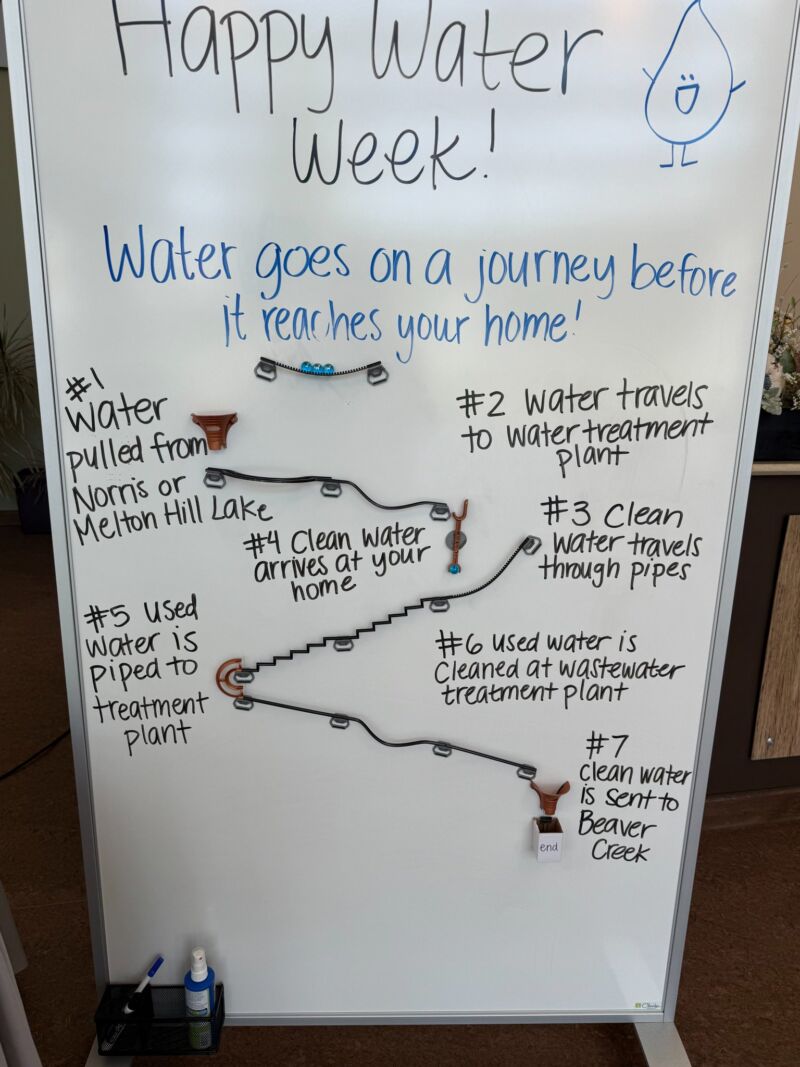 Happy Water
Week!
Water goes on a journey before
it reaches your home!
#1
Water
pulled from
Norris or
Melton Hill Lake
#2 Water travels
to water treatment
plant
#3 Clean
water travels
through pipes
#4 Clean water
arrives at your
home
#5 Used
water is
piped to
treatment
plant
#6 Used water is
cleaned at wastewater
treatment plant
#7
Clean water
is sent to
Beaver
Creek
end